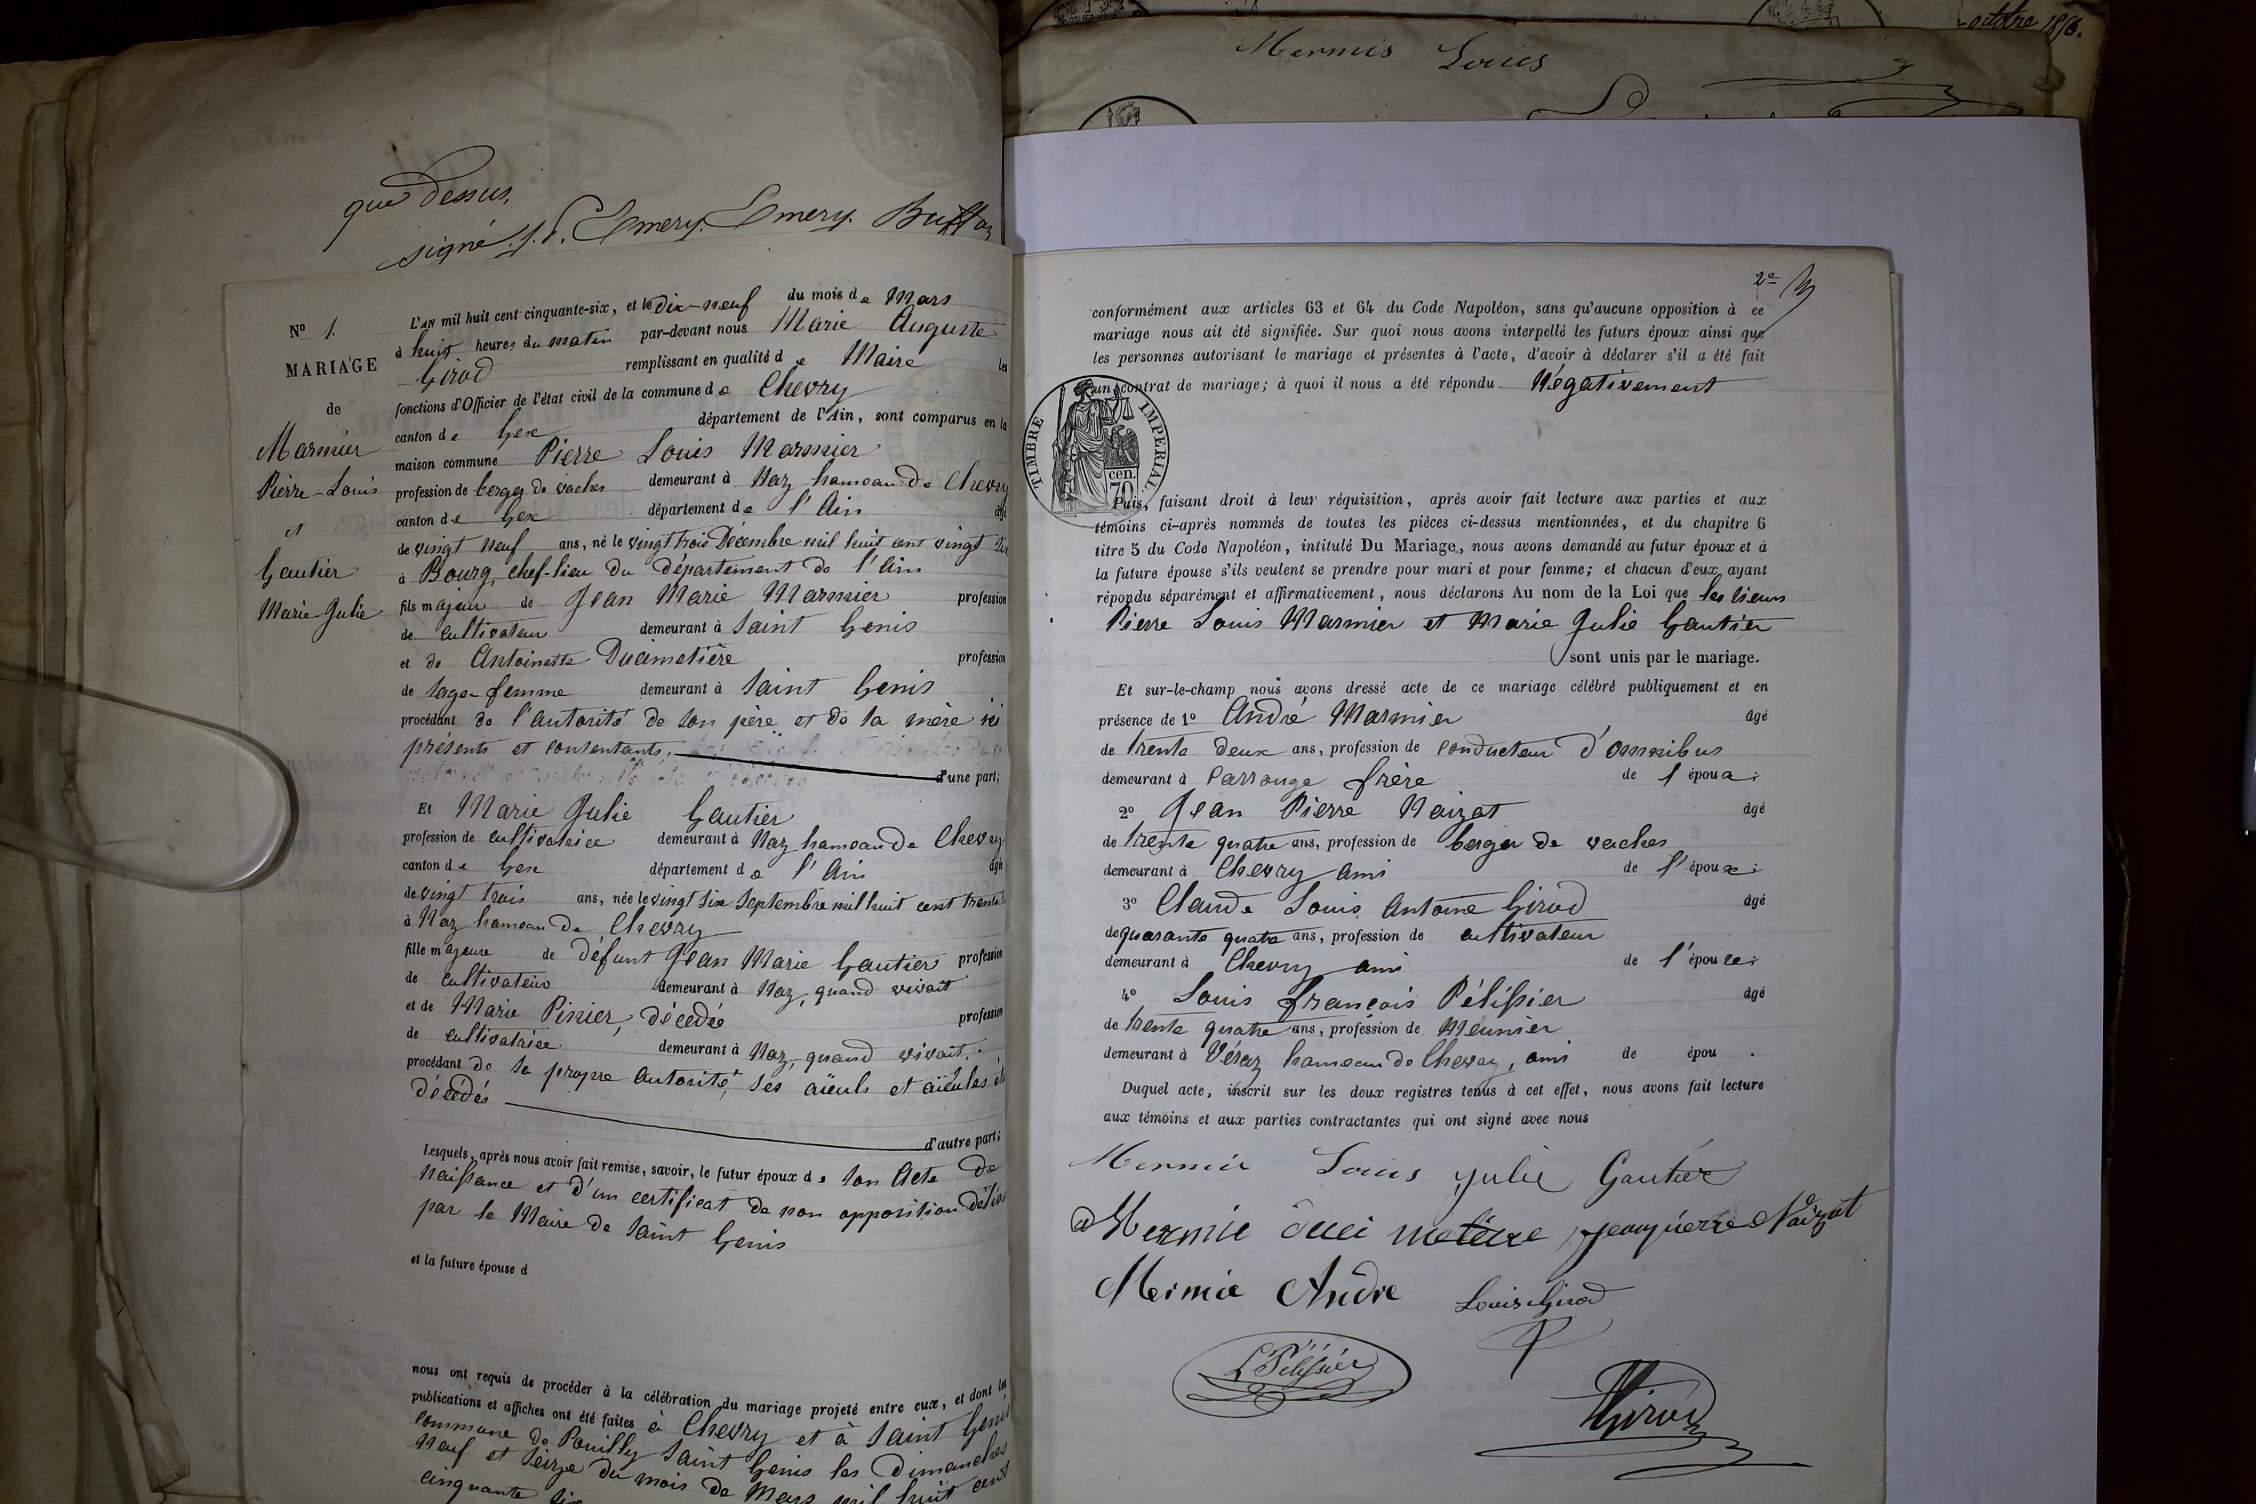 que dessus,
signé. J. P. Emery. Emery. Buffaz
N° 1.
MARIAGE
de
Marmier
Pierre-Louis
et
Gautier
Marie-Julie
L'AN mil huit cent cinquante-six, et le dix-neuf du mois de Mars
à huit heures du matin par-devant nous Marie Auguste
Girod remplissant en qualité de Maire les
fonctions d'Officier de l'état civil de la commune de Chevry
canton de Gex département de l'Ain, sont comparus en la
maison commune Pierre Louis Marmier
profession de berger de vaches demeurant à Naz hameau de Chevry
canton de Gex département de l'Ain âgé
de vingt neuf ans, né le vingt trois Décembre mil huit cent vingt six
à Bourg, chef-lieu du département de l'Ain
fils majeur de Jean Marie Marmier profession
de cultivateur demeurant à Saint Genis
et de Antoinette Ducimetière profession
de sage-femme demeurant à Saint Genis
procédant de l'autorité de son père et de sa mère ici
présents et consentants,
d'une part;
Et Marie Julie Gautier
profession de cultivatrice demeurant à Naz hameau de Chevry
canton de Gex département de l'Ain âgée
de vingt trois ans, née le vingt six Septembre mil huit cent trente
à Naz hameau de Chevry
fille majeure de défunt Jean Marie Gautier profession
de cultivateur demeurant à Naz, quand vivait
et de Marie Pinier, décédée profession
de cultivatrice demeurant à Naz, quand vivait,
procédant de sa propre autorité, ses aïeuls et aïeules
décédés
d'autre part;
Lesquels, après nous avoir fait remise, savoir, le futur époux de son Acte de
Naissance et d'un certificat de non opposition délivré
par le Maire de Saint Genis
et la future épouse d
nous ont requis de procéder à la célébration du mariage projeté entre eux, et dont les
publications et affiches ont été faites à Chevry et à Saint Genis
commune de Pouilly Saint Genis les Dimanches
Neuf et seize du mois de Mars mil huit cent
cinquante six
octobre 1856.
Mermis Louis
2e
conformément aux articles 63 et 64 du Code Napoléon, sans qu'aucune opposition à ce
mariage nous ait été signifiée. Sur quoi nous avons interpellé les futurs époux ainsi que
les personnes autorisant le mariage et présentes à l'acte, d'avoir à déclarer s'il a été fait
un contrat de mariage; à quoi il nous a été répondu Négativement
TIMBRE IMPERIAL
cen.
70
Puis, faisant droit à leur réquisition, après avoir fait lecture aux parties et aux
témoins ci-après nommés de toutes les pièces ci-dessus mentionnées, et du chapitre 6
titre 5 du Code Napoléon, intitulé Du Mariage, nous avons demandé au futur époux et à
la future épouse s'ils veulent se prendre pour mari et pour femme; et chacun d'eux ayant
répondu séparément et affirmativement, nous déclarons Au nom de la Loi que les sieurs
Pierre Louis Marmier et Marie Julie Gautier
sont unis par le mariage.
Et sur-le-champ nous avons dressé acte de ce mariage célébré publiquement et en
présence de 1° André Marmier âgé
de trente deux ans, profession de conducteur d'omnibus
demeurant à Carrouge frère de l'époux;
2° Jean Pierre Naizot âgé
de trente quatre ans, profession de berger de vaches
demeurant à Chevry ami de l'époux;
3° Claude Louis Antoine Girod âgé
de quarante quatre ans, profession de cultivateur
demeurant à Chevry ami de l'épouse;
4° Louis François Pélissier âgé
de trente quatre ans, profession de Meunier
demeurant à Véraz hameau de Chevry, ami de épou .
Duquel acte, inscrit sur les deux registres tenus à cet effet, nous avons fait lecture
aux témoins et aux parties contractantes qui ont signé avec nous
Mermie Louis Julie Gautier
Mermie duci metiere Jean pierre Naizot
Mermie Andre Louis Girod
L Pélissier
Girod